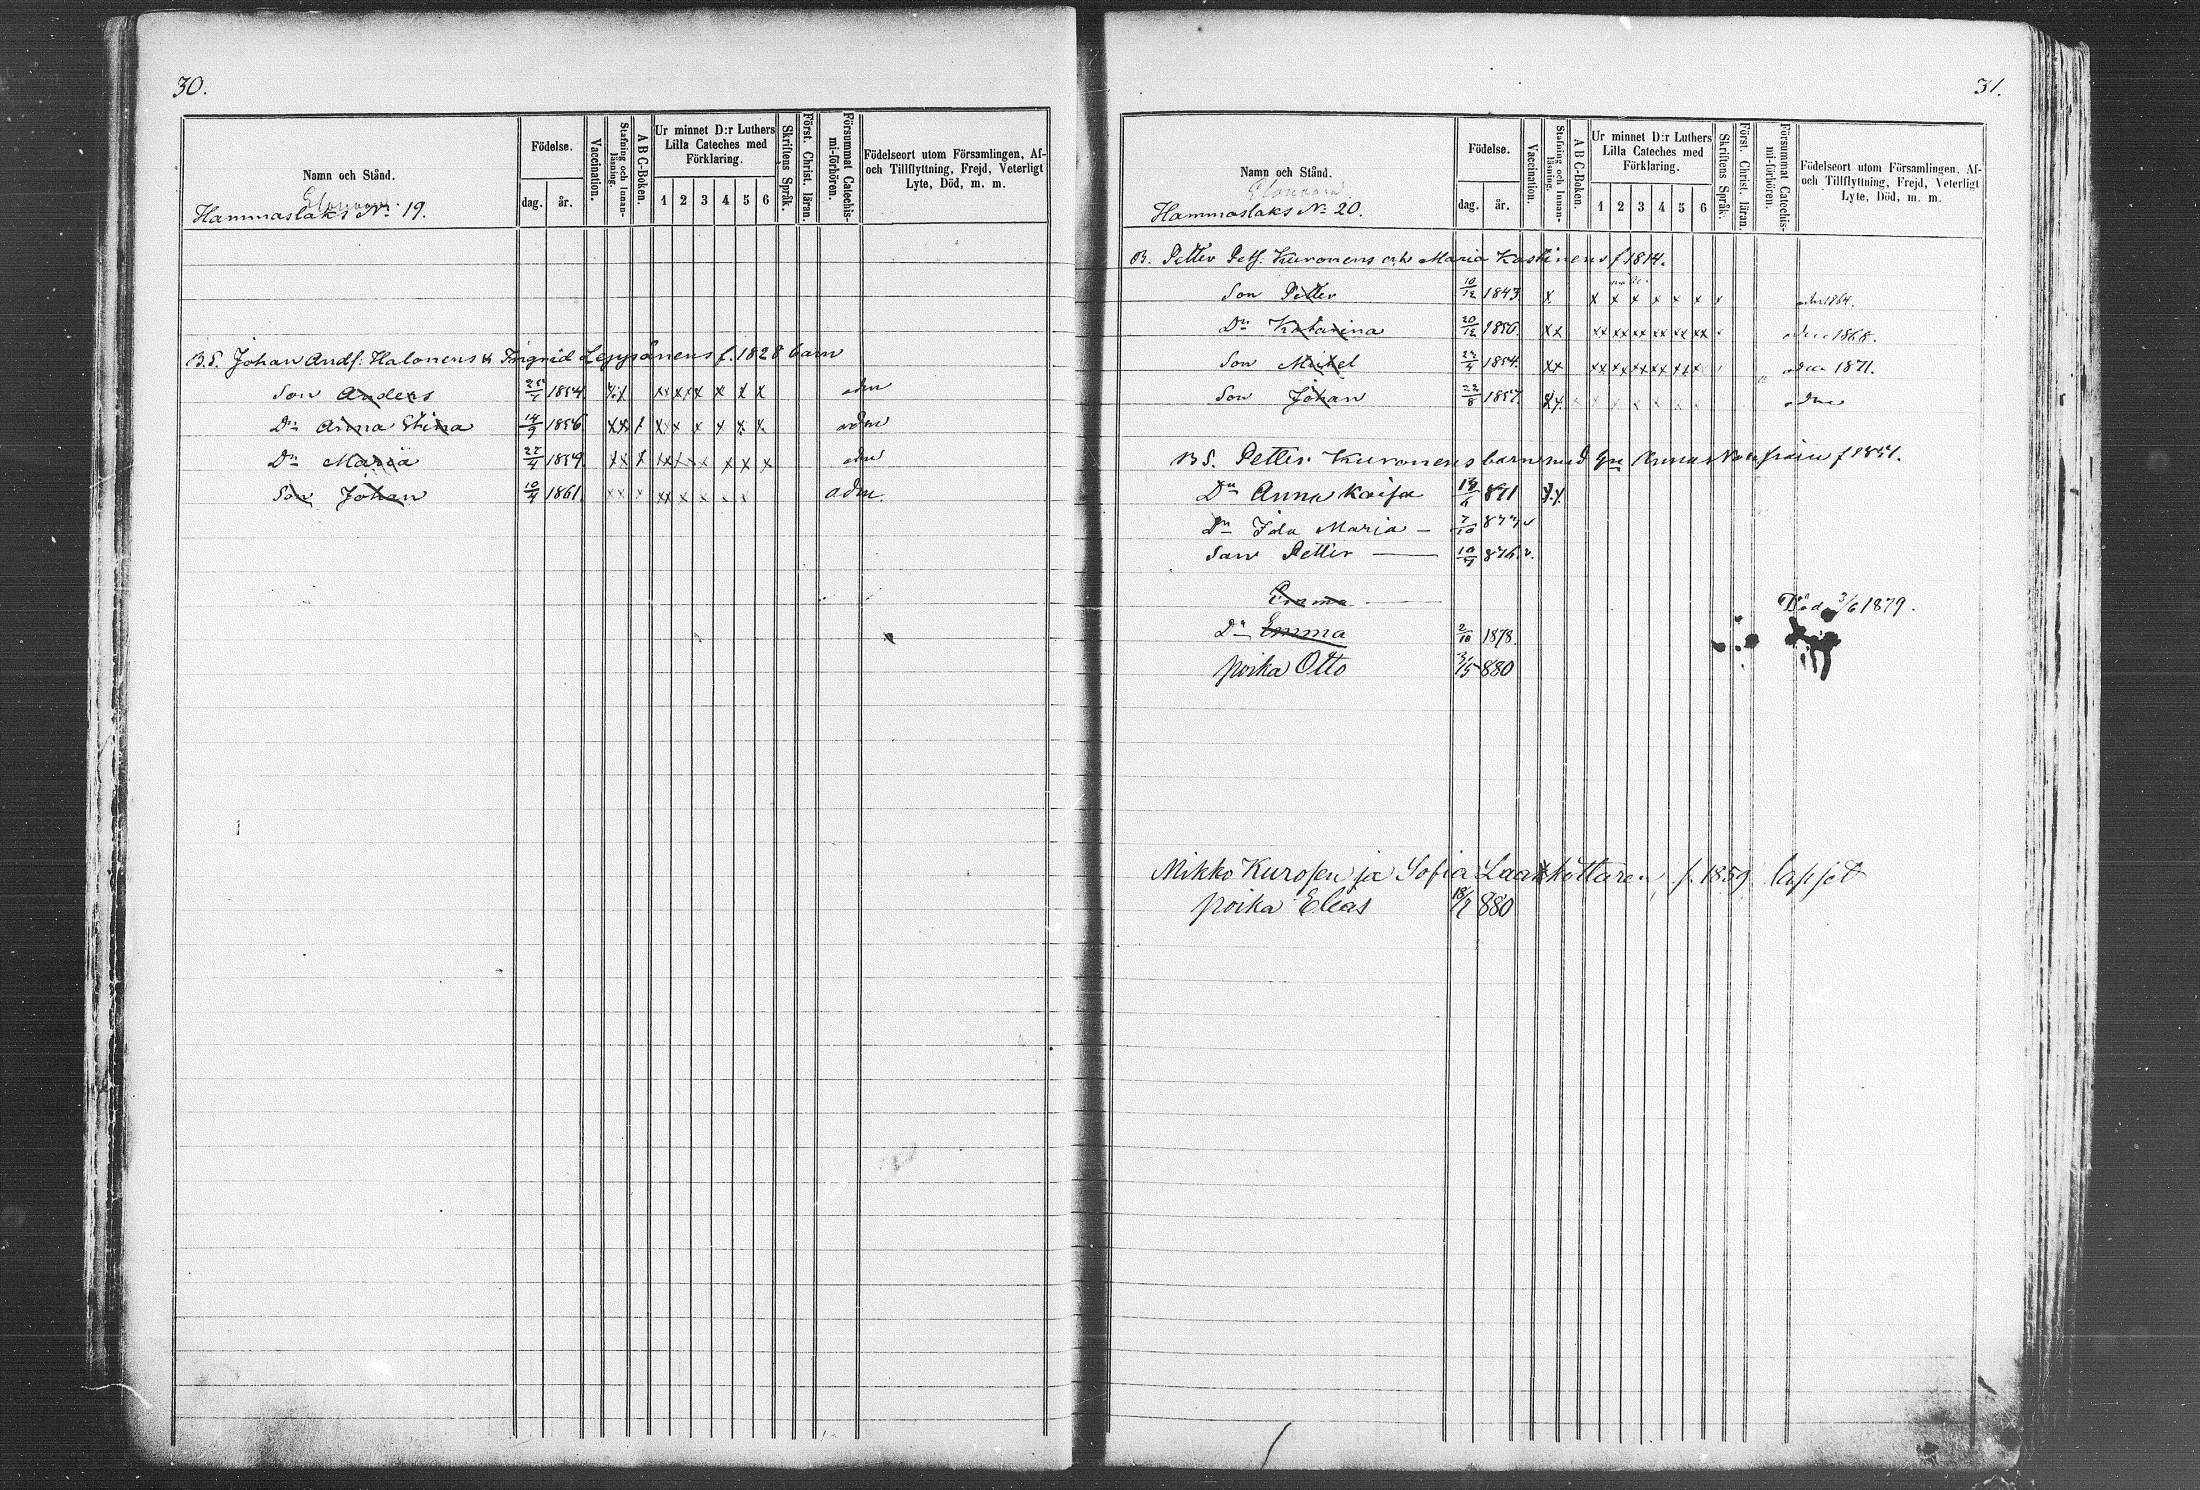 30.
Namn och Stånd.
Födelse.
dag.
år.
Vaccination.
Stafning och Innanläsning.
A B C-Boken.
Ur minnet D:r Luthers Lilla Cateches med Förklaring.
1 2 3 4 5 6
Skriftens Språk.
Först. Christ. läran.
Försummat Catechismi-förhören.
Födelseort utom Församlingen, Af- och Tillflyttning, Frejd, Veterligt Lyte, Död, m. m.
Hammaslaks No 19.
B.S. Johan Andf. Halonens Ingrid Leppänens f. 1828 barn
Son Anders 1854 x x x x x x adm
Dn Anna Stina 14/9 1856 x x x x x x x x x adm
Dn Maria 1859 x x x x x x x x x adm
Son Johan 10/4 1861 x x x x x x x x x adm.
31.
Namn och Stånd.
Födelse.
dag.
år.
Vaccination.
Stafning och Innanläsning.
A B C-Boken.
Ur minnet D:r Luthers Lilla Cateches med Förklaring.
1 2 3 4 5 6
Skriftens Språk.
Först. Christ. läran.
Försummat Catechismi-förhören.
Födelseort utom Församlingen, Af- och Tillflyttning, Frejd, Veterligt Lyte, Död, m. m.
Hammaslaks No 20.
B. Petter Petf. Kuronens och Maria f 1814.
Son Petter 10/12 1843 x x x x x x x x 1864.
Dn Katarina 20/12 1850 xx xx xx xx xx xx xx 1868.
Son Mikel 1854. xx xx xx xx xx xx x 1871.
Son Johan 22/8 1857. x x
B S. Petter Kuronens barn med Anna f 1851.
Dn Anna Kaisa 871
Dn Ida Maria — 7/10
Son Petter — 10/7 876.
Emma —
Död 3/6 1879.
Dn Emma 2/10 1878.
poika Otto 880
Mikko Kurosen ja Sofia f. 1859 lapset
poika Elias 880